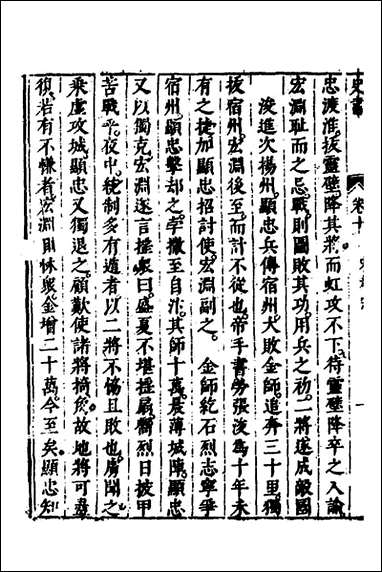 史書 卷十
忠渡淮。拔靈壁。降其將。而虹攻不下。待靈壁降卒之入諭
宏淵耻而之忌。戰則圖敗其功。用兵之初。二將遂成敵國
浚進次楊州。顯忠兵傅宿州。大敗金師。追奔三十里。獨
拔宿州。宏淵後至。而計不從也。帝手書勞張浚。為十年未
有之捷。加顯忠招討使。宏淵副之。 金師紇石烈志寧爭
宿州。顯忠擊却之。孛撒至自汴。其師十萬。晨薄城陳。顯忠
又以獨克。宏淵遂言衆曰盛夏不堪搖扇。烈日披甲
苦戰乎。夜中。統制多有遁者。以二將不協且敗也。虜聞之
乘虛攻城。顯忠又獨退之。顧歎使諸將掎。故地將可盡
復。若有不慊者。宏淵則休衆。金增二十萬。今至矣。顯忠知